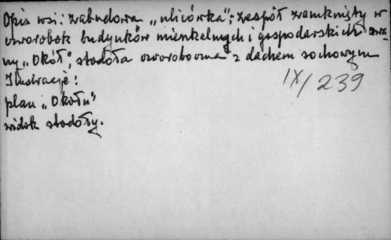 Opis wsi: zabudowa „ulicówka”; zespół zamknięty w
czworobok budynków mieszkalnych i gospodarskich zwa-
ny „Okół”; stodoła ozworoboczna z dachem sochowym
Ilustracje:
plan „Okołu”
widok stodoły.
IX/239